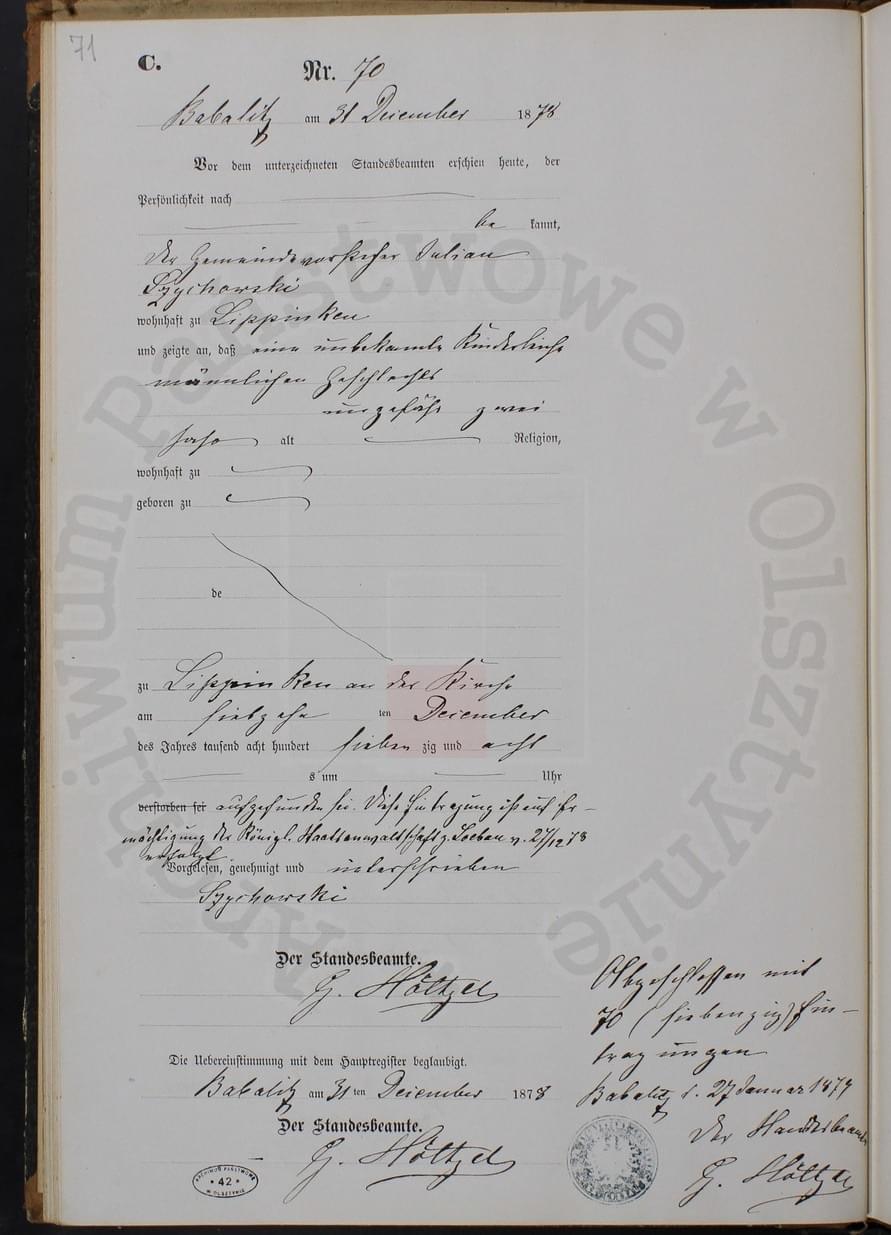 71
C.
Nr. 70
Babalitz am 31 Dezember 1878
Vor dem unterzeichneten Standesbeamten erschien heute, der
Persönlichkeit nach
be kannt,
der Gemeindevorsteher Julian
Szychowski
wohnhaft zu Lippinken
und zeigte an, daß eine unbekannte Kinderleiche
männlichen Geschlechts
ungefähr zwei
Jahr alt Religion,
wohnhaft zu
geboren zu
de
zu Lippinken an der Kirche
am siebzehn ten Dezember
des Jahres tausend acht hundert sieben zig und acht
s um Uhr
verstorben sei aufgefunden sei. Diese Eintragung ist auf Er-
mächtigung der Königl. Staatsanwaltschaft z. Loebau v. 27/12 78
erfolgt.
Vorgelesen, genehmigt und unterschrieben
Szychowski
Der Standesbeamte.
G. Höltzel
Die Uebereinstimmung mit dem Hauptregister beglaubigt.
Babalitz am 31 ten Dezember 1878
Der Standesbeamte.
G. Höltzel
Abgeschlossen mit
70 (siebenzig) Ein-
tragungen
Babalitz d. 27 Januar 1879
Der Standesbeamte
G. Höltzel
ARCHIWUM PAŃSTWOWE
* 42 *
W OLSZTYNIE
Archiwum Państwowe w Olsztynie